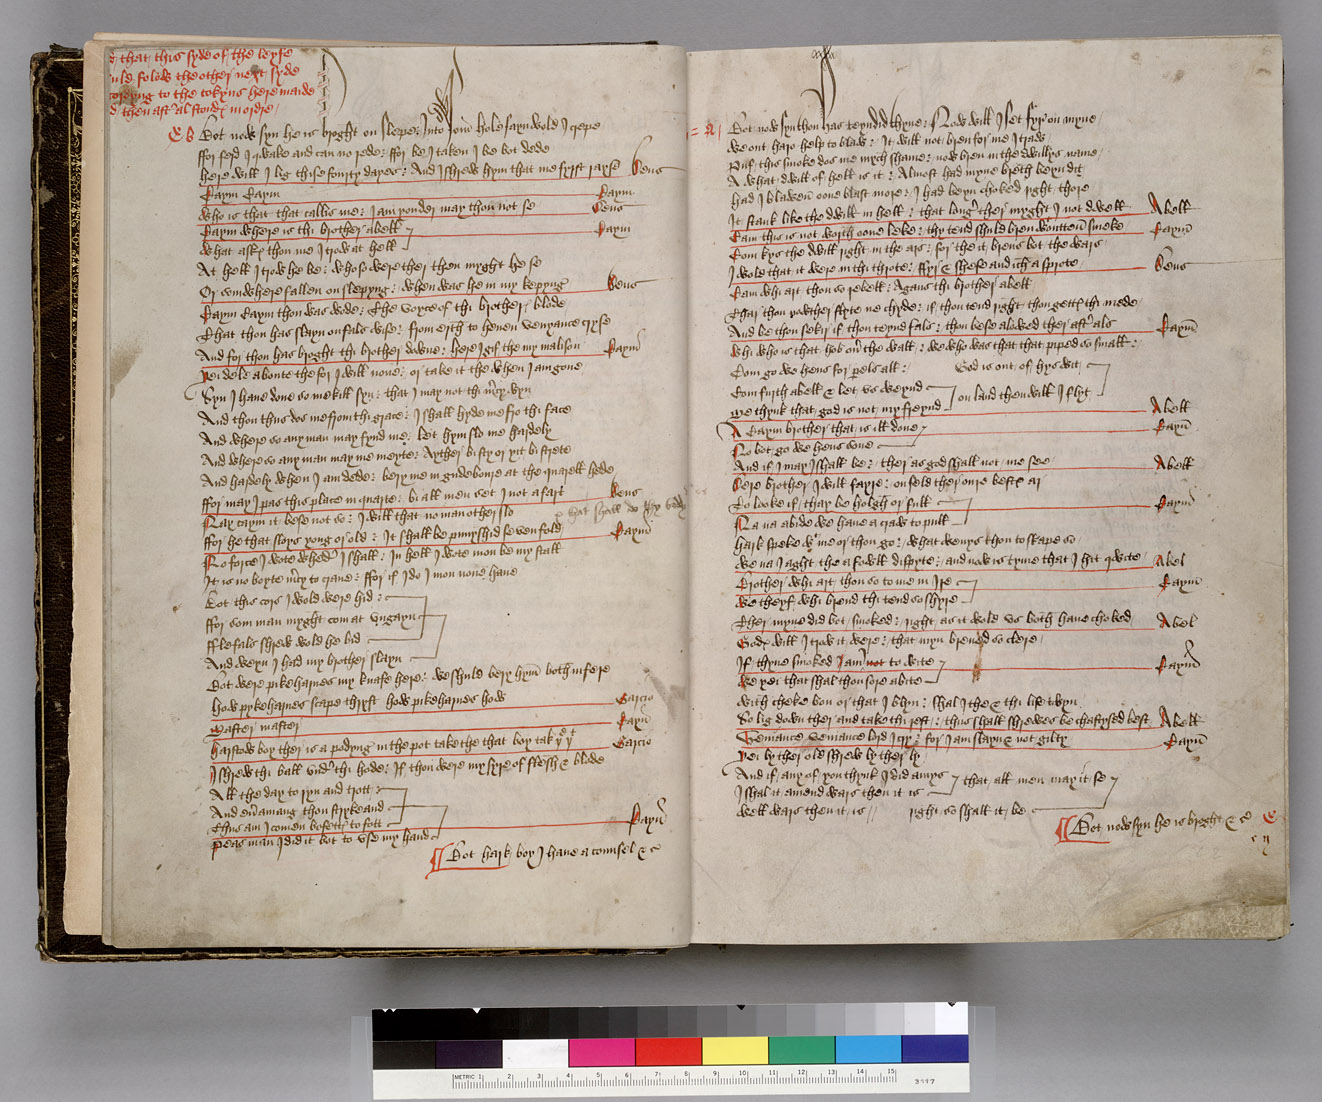 d that this syde of the leyfe
uld folow the other next syde
cordyng to the tokyns here maide
d then aft al stondȝ in ordre
B Bot now syn he is broght on slepe : Into som hole fayn wold I crepe
ffor ferd I qwake and can no rede : ffor be I taken I be bot dede
here will I lig thise fourty dayes : And I shrew hym that me fyrst rayse Deus
Caym Caym Caym
who is that that callis me : I am yonder may thou not se Deus
Caym where is thi brother abell Caym
what askȝ thou me I trow at hell
At hell I trow he be : whoso were ther then myght he se
Or somwhere fallen on slepyng : when was he in my kepyng Deus
Caym Caym thou was wode : The voyce of thi brotherȝ blode
That thou has slayn on fals wise : from erth to heven venyance cryse
And for thou has broght thi brother downe : here I gif the my malison Caym
yei dele aboute the for I will none : or take it the when I am gone
Syn I have done so mekill syn : that I may not thi mcy wyn
And thou thus dos me from thi grace : I shall hyde me fro thi face
And where so any man may fynd me : let hym slo me hardely
And where so any man may me meyte : Ayther bi sty or yit bi strete
And hardely when I am dede : bery me in gudeboure at the quarell hede
ffor may I pas this place in quarte : bi all men set I not a fart Deus
Nay caym it bese not so : I will that no man other slo
ffor he that sloys yong or old : It shall be punyshid sevenfold Caym
No force I wote wheder I shall : In hell I wote mon be my stall
It is no boyte mcy to crave : ffor if I do I mon none have
Bot this cors I wold were hid :
ffor som man myght com at ungayn
fle fals shrew wold he bid
And weyn I had my brother slayn
Bot were pikeharnes my knafe here : we shuld bery hym both in fere
how pykeharnes scape thryft how pikeharnes how Garcio
master master Caym
harstow boy ther is a podyng in the pot take the that boy tak yᵉ yᵗ Garcio
I shrew thi ball undʳ thi hode : If thou were my syre of flesh & blode
All the day to ryn and trott
And euer amang thou strykeand
Thus am I comen bofettȝ to fott Caym
Peas man I did it bot to use my hand
Bot hark boy I have a counsel & c
A Bot now syn thou has teynd id thyne : Now will I set fyr on myne
we out haro help to blaw : It will not bren for me I traw
Puf this smoke dos me mych shame : now bren in the dwillys name
A what dwill of hell is it : Almost had myne breth beyn dit
had I blawen oone blast more : I had beyn choked right thore
It stank like the dwill in hell : that longʳ ther myght I not dwell Abell
Cam this is not worth oone leke : thy tend shuld bren wᵗoutten smoke Caym
Com kys the dwill right in the ars : for the it brens bot the wars
I wold that it were in thi throte : ffyr & shefe and ich a sprote Deus
Cam whi art thou so rebell : Agans thi brother abell
Thar thou nowther flyte ne chyde : if thou tend right thou gettȝ thi mede
And be thou sekir if thou teynd fals : thou bese alowed ther aftʳ als Caym
whi who is that hob over the wall : we who was that that piped so small
Com go we hens for pels all : God is out of hys wit
Com furth abell & let us weynd
me thynk that god is not my freynd on land then will I flyt Abell
A Caym brother that is ill done Caym
No bot go we hens sone
And if I may I shall be : ther as god shall not me see Abell
Dere brother I will fayre : on feld ther oure bestȝ ar
To looke if thay be holgh or full Caym
Na na abide we have a craw to pull
hark speke wᵗ me or thou go : what wenys thou to skape so
we na I aght the a fowll dispyte : and now is tyme that I hit qwite Abel
Brother whi art thou so to me in Ire Caym
we theyf whi brend thi tend so shyre
Ther myne did bot smoked : right as it wold us both have choked Abel
Godȝ will I trow it were : that myn brened so clere
If thyne smoked I am not to wite Caym
we yei that shal thou sore abite
with cheke bon or that I blyn : shal I the & thi life twyn
So lig down ther and take thi rest : thus shall shrewes be chastysed best Abell
Veniance veniance lord I cry : for I am slayn & not gilty Caym
yei ly ther old shrew ly ther ly
And if any of you thynk I did amys that all men may it se
I shal it amend wars then it is
well wars then it is right so shall it be
Bot now syn he is broght & c
METRIC 1 2 3 4 5 6 7 8 9 10 11 12 13 14 15